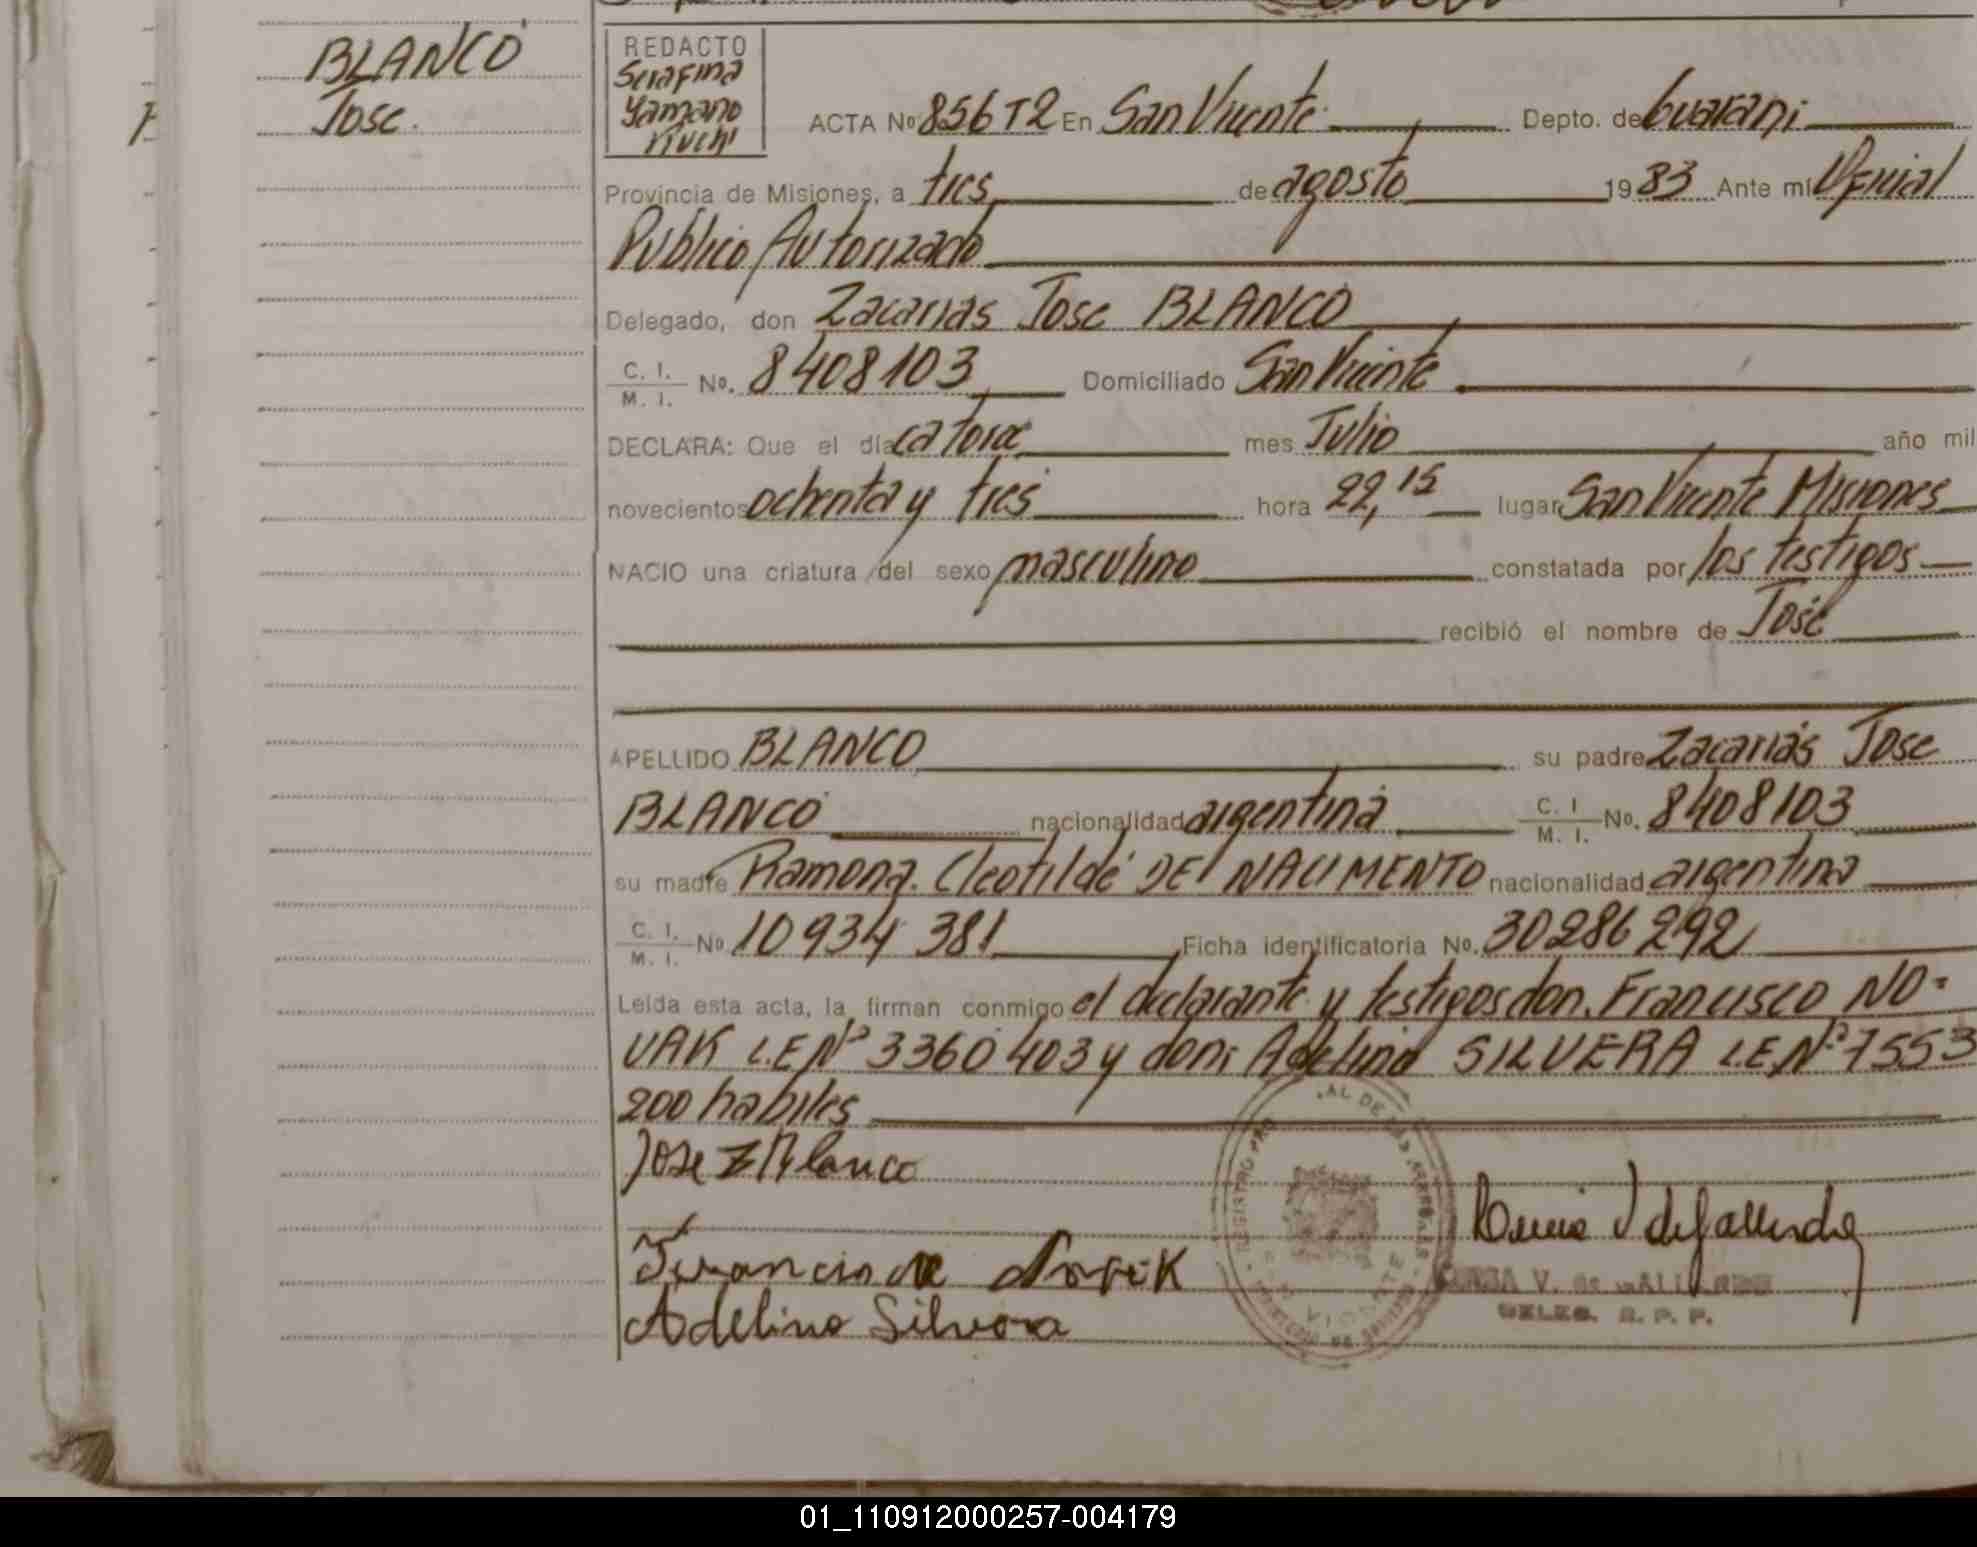 BLANCO
Jose.
REDACTO
Serafina
ACTA Nº 856 T2 En San Vicente Depto. de Guarani
Provincia de Misiones, a tres de agosto 1983 Ante mí Oficial
Público Autorizado
Delegado, don Zacarias Jose BLANCO
C. I.
M. I. No. 8408103 Domiciliado San Vicente
DECLARA: Que el día catorce mes Julio año mil
novecientos ochenta y tres hora 22,15 lugar San Vicente Misiones
NACIO una criatura del sexo masculino constatada por los testigos
recibió el nombre de José
APELLIDO BLANCO su padre Zacarias Jose
BLANCO nacionalidad argentina C. I.
M. I. No. 8408103
su madre Ramona Cleotilde DE NACIMENTO nacionalidad argentina
C. I.
M. I. No. 10934 381 Ficha identificatoria No. 30286292
Leída esta acta, la firman conmigo el declarante y testigos don. Francisco NO-
VAK L.E Nº 3360403 y don: Adelino SILVERA L.E.Nº 7553
200 habiles
Jose Z Blanco
Novek
Adelino Silvera
V. de GALLARDO
DELEG. R. P. P.
01_110912000257-004179